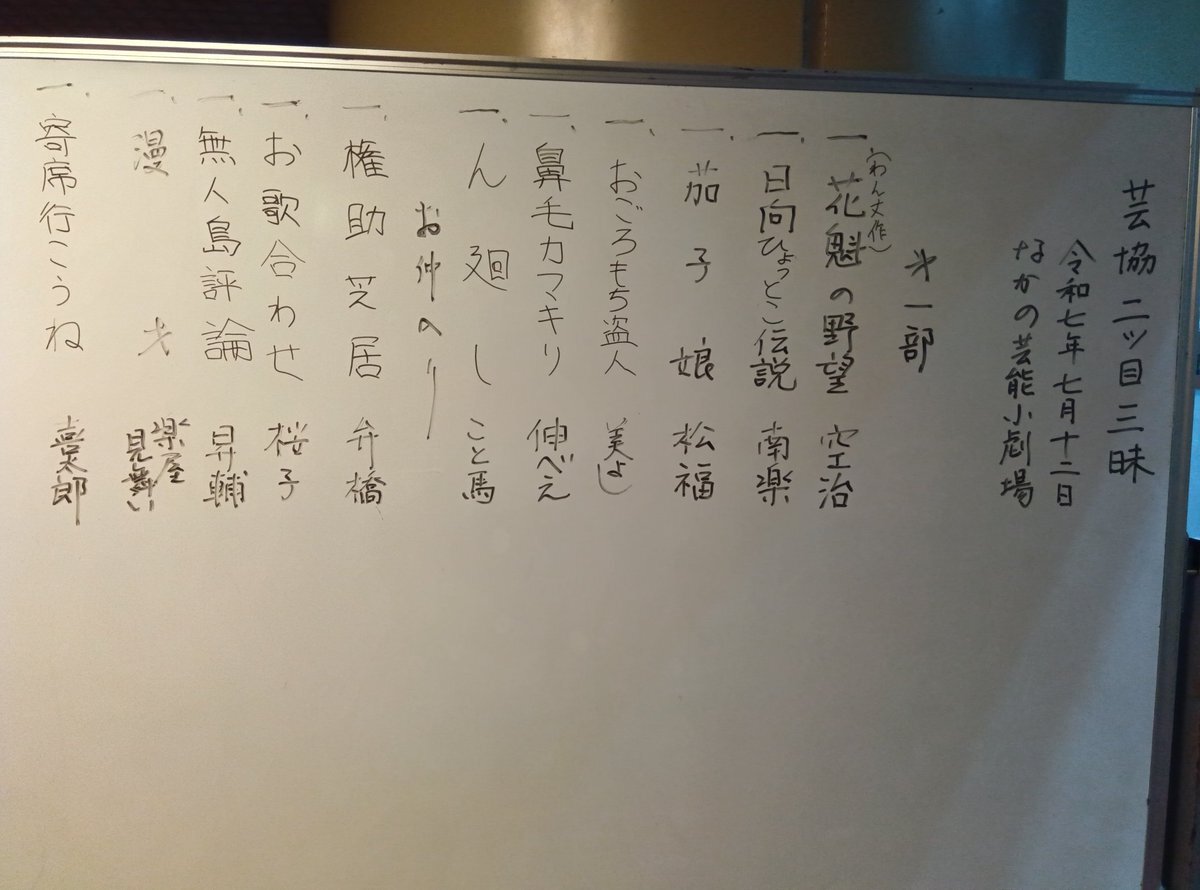 芸協二ツ目三昧
令和七年七月十二日
なかの芸能小劇場
オ一部
一 花魁の野望 空治
(わん丈作)
一、日向ひょっとこ伝説 南楽
一、茄子娘 松福
一、おごろもち盗人 美よし
一、鼻毛カマキリ 伸べえ
一、ん廻し こと馬
お仲入り
一、権助芝居 弁橋
一、お歌合わせ 桜子
一、無人島評論 昇輔
一、漫才 楽屋見舞い
一、寄席行こうね 喜太郎